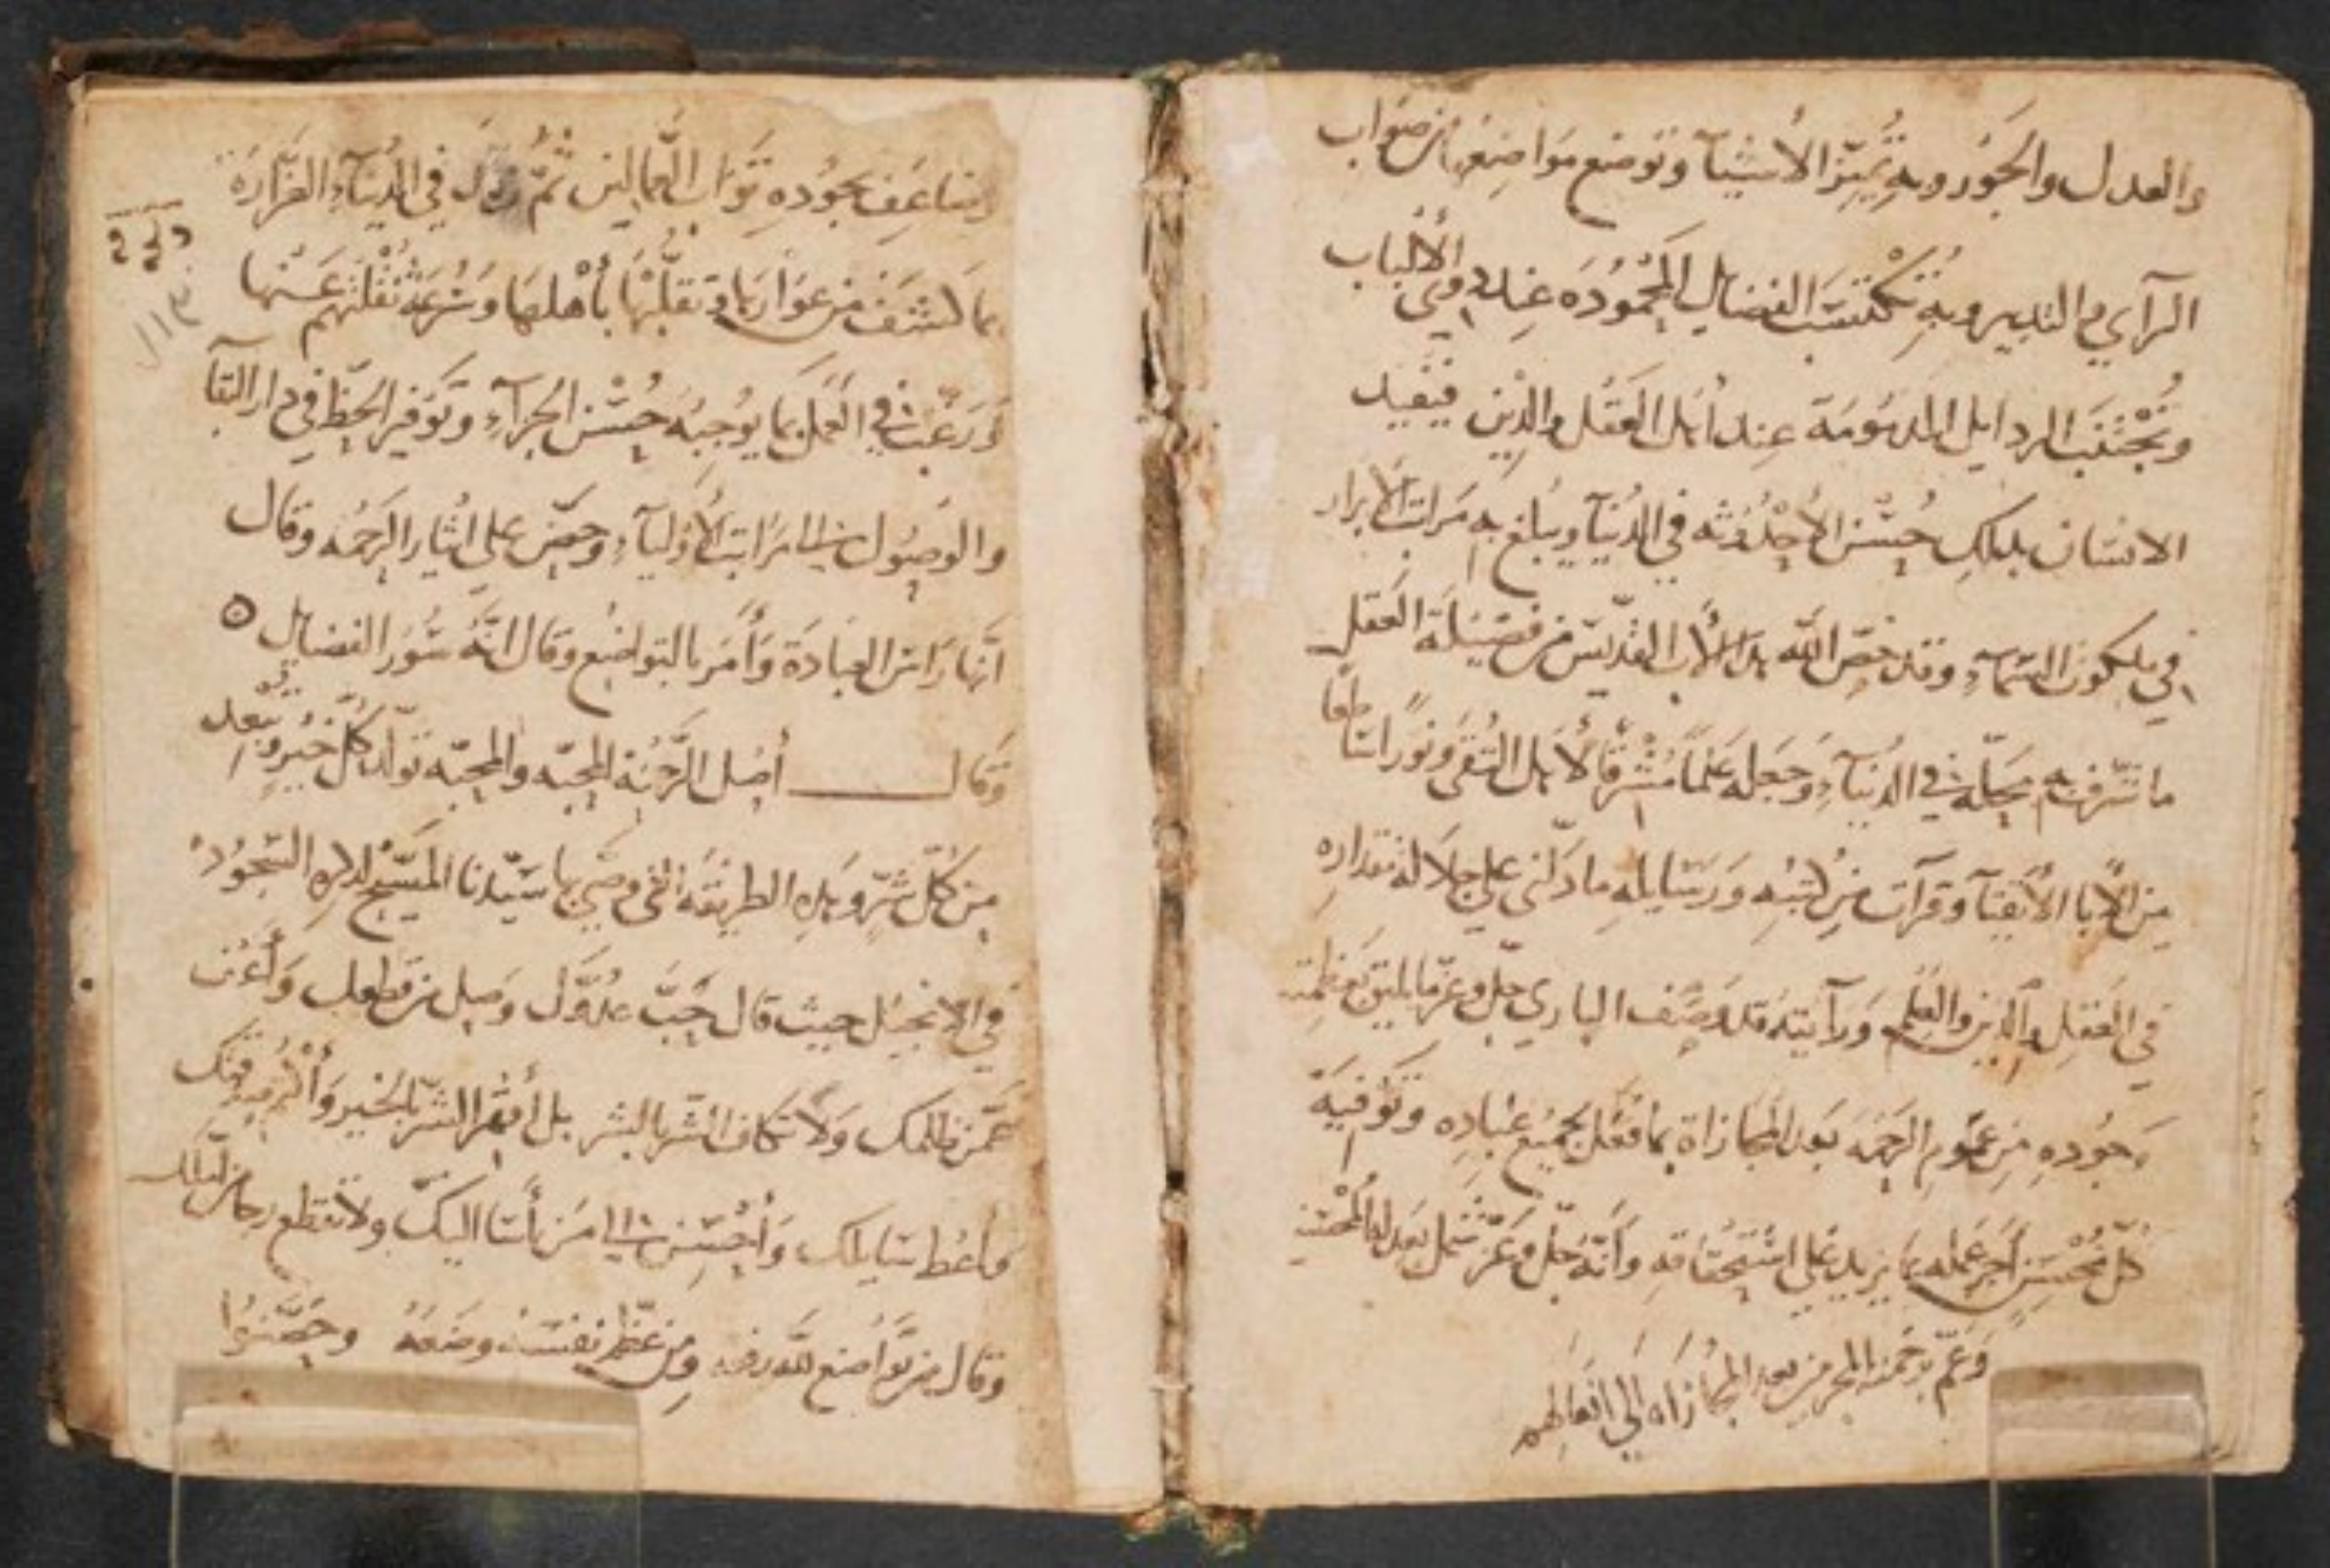 والعدل والجَوْر وبِهِ تُمَيّز الأشيآ وتوضع مَوَاضِعُها من صَوَاب
الرآي والتدبير وبهِ تُكْتسَبَ الفضايل المَحْمُودَه عِند ذوي الألباب
وتُجْتنَبَ الردايل المدمُومَة عِند أهل العَقل والدِين فيَفيد
الانسَان بدلكِ حُسْن الأحْدُوثه في الدُنيآ ويبلغ بهِ مَرَاتب الأبرَار
في ملكوت السَمآءِ وقد خصّ الله هدا الأب القدّيس من فضِيلة العَقل
ما شرّف بهِ محَلّه في الدنيآءِ وَجَعَله عَلماً مُشْرقاً لأهل التُقى ونوراً سَاطعاً
مِن الأبا الأتقيآ وقرآت مِن كتبهِ وَرسَايلهِ ما دَلّني على جلاَلة مقدارهِ
في العَقلِ والدِين والعِلم وَرآيتهُ قد وَصَف الباري جلّ وعزّ بما يليق بعَظمته
وَجُودهِ مِن عمُوم الرحمَه بَعد المجَازاة بمَا فعَل بجميْع عبَادِهِ وتَوْفيَة
كلّ مُحْسِن أجر عَمله بما يزيد عَلى اسْتحقاقهِ وَأنّهُ جلّ وعَز شمل بعَدلهِ المُحْسنين
وَعَمّ برَحمته المجرمين بعد المجُازَاه الي افعَالهم
وضاعَف بجُودهِ ثَوَاب العَمالين ثمّ في الدُنيآءِ الغَرّارة
بما كشَف من عوَارهَا وَتقلّبُهَا بأهْلهَا وَسُرعَة نُقْلتهم عَنْها
وَرغّبَ في العَمل بما يوُجبُهُ حُسْن الجزآءِ وتَوَفير الحَظّ في دار البقآ
والوصُول الى مرَاتب الأوليآءِ وحضّ على ايثار الرَحمَه وقال
انّها رَاس العبَادَة وَأمَر بالتواضُع وقال انّهُ سُور الفضايل ه
وَقال أصْل الرَحْمَة المحبّه والمحبّه توَلّد كلّ خَيْر وتبْعد
مِن كُلّ شَرّ وهَدِهِ الطريقه التي وصّي بها سَيّدنا المَسِيْح لدكرهِ السّجوُدُ
في الانجِيْل حيث قال حبّ عدُوّك وصِل من قطعك وَأعْف
عَمّن ظلمك وَلا تكاف الشرّ بالشر بل أقهَر الشرّ بالخير وَأكْرم من
واعْطِ سَايلك وَأحْسِن الى مَن أسَآ اليكّ ولا تقطع رجَا من أمّلك
وقال مِن تواضع للّه رفعهِ ومِن عَظّم نفسَه وضَعَهُ وحَصّنوُا